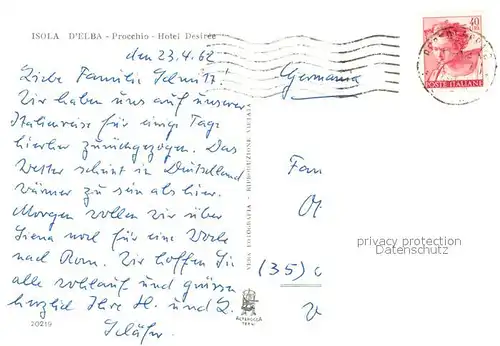 ISOLA D'ELBA - Procchio - Hotel Desirée
den 23.4.62
Liebe Familie Schmitt!
Wir haben uns auf unserer
Italienreise für einige Tage
hierher zurückgezogen. Das
Wetter scheint in Deutschland
wärmer zu sein als hier.
Morgen wollen wir über
Siena noch für eine Woche
nach Rom. Wir hoffen Sie
alle wohlauf und grüssen
herzlich Ihre H. und L.
Schäfer.
20219
VERA FOTOGRAFIA - RIPRODUZIONE VIETATA
40
POSTE ITALIANE
Germania
Fam
(35)
privacy protection
Datenschutz